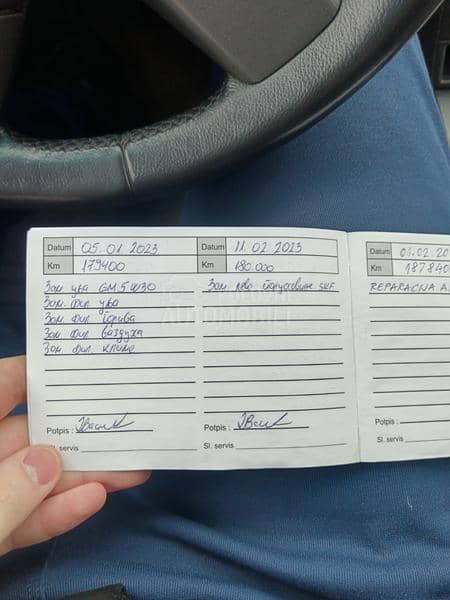 Datum 05.01 2023
Km 179400
Зам уља GM 5W30
Зам фил уља
Зам фил горива
Зам фил ваздуха
Зам фил. климе
Potpis :
Sl. servis
Datum 11.02 2023
Km 180 000
Зам SKF
Potpis :
Sl. servis
Datum .02.20
Km 187840
REPARACIJA A
Potpis :
Sl. servis